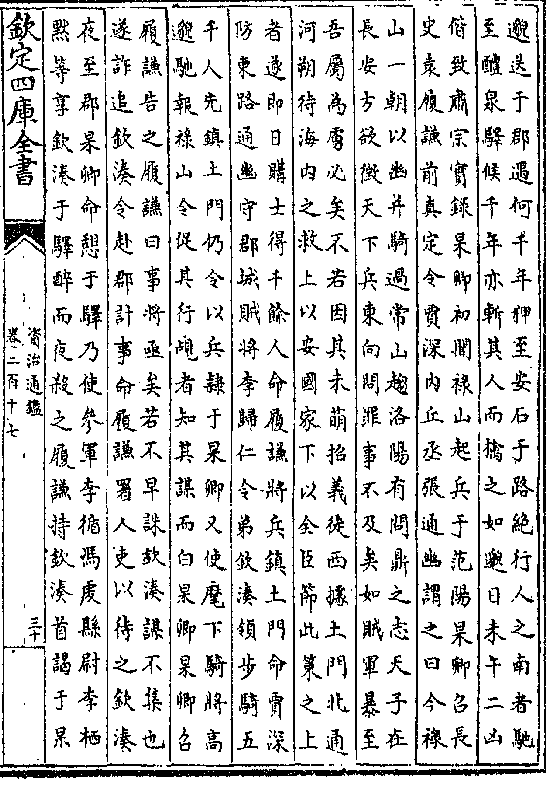 邈送于郡遇何千年狎至安石于路絶行人之南者馳
至醴泉驛候千年亦斬其人而擒之如邈日未午二凶
偕致肅宗實録杲卿初聞祿山起兵于范陽杲卿召長
史袁履謙前真定令賈深内丘丞張通幽謂之曰今祿
山一朝以幽并騎過常山趨洛陽有問鼎之志天子在
長安方欲徵天下兵東向問罪事不及矣如賊軍暴至
吾屬為虜必矣不若因其未萌招義徒西據土門北通
河朔待海内之救上以安國家下以全臣節此策之上
者遂即日購士得千餘人命履謙將兵鎮土門命賈深
防東路通幽守郡城賊將李歸仁令弟欽湊領步騎五
千人先鎮土門仍令以兵隷于杲卿又使麾下騎將高
邈馳報祿山令促其行覘者知其謀而白杲卿杲卿召
履謙告之履謙曰事將亟矣若不早誅欽湊謀不集也
遂詐追欽湊令赴郡計事命履謙署人吏以待之欽湊
夜至郡杲卿命憩于驛乃使參軍李循馮虔縣尉李栖
黙等享欽湊于驛醉而夜殺之履謙持欽湊首謁于杲
欽定四庫全書
資治通鑑
卷二百十七
三十